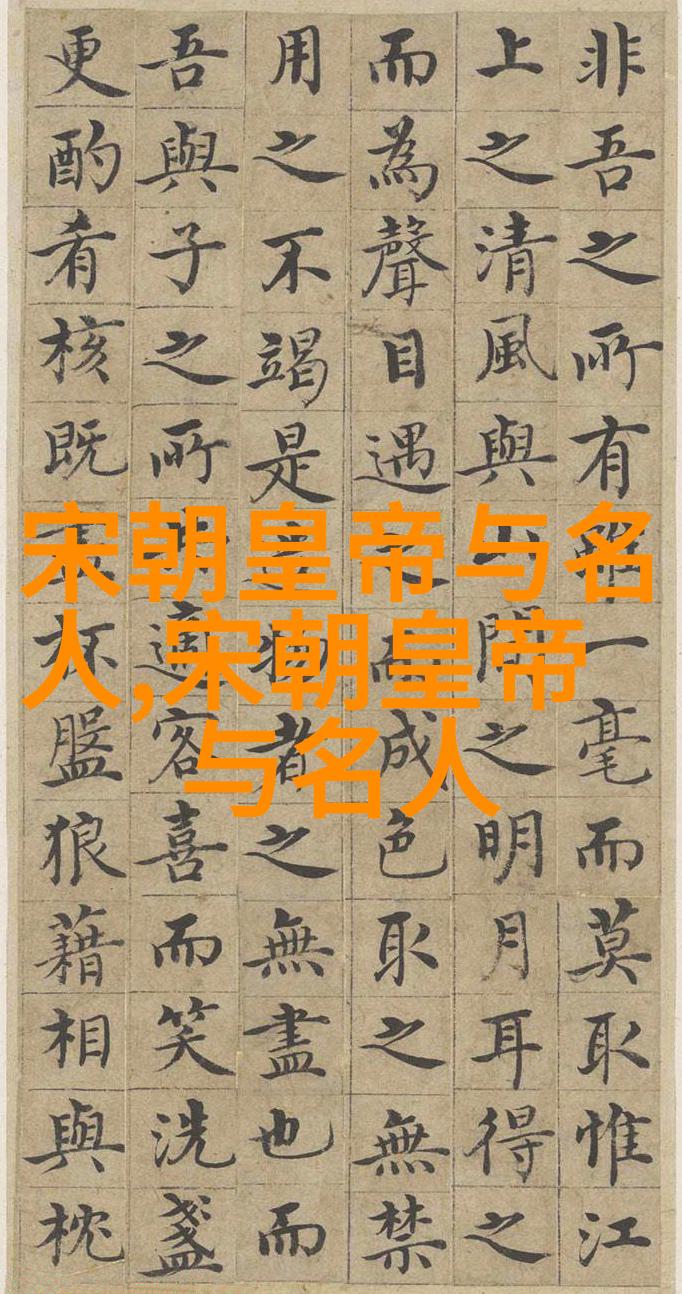 非吾之所有雖一毫而莫取惟江
上之清風與山間之明月耳得之
而為聲目遇之而成色取之無禁
用之不竭是造物者之無盡也而
吾與子之所適客喜而笑洗盞
更酌肴核既盡杯盤狼藉相與枕
宋朝皇帝与名
人,宋朝皇帝
与名人